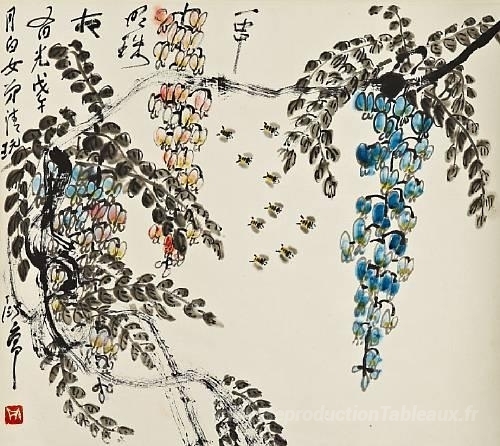 一串
明珠
夜
有光戊午
月白女弟清玩
衍庸
eproductionTableaux.fr